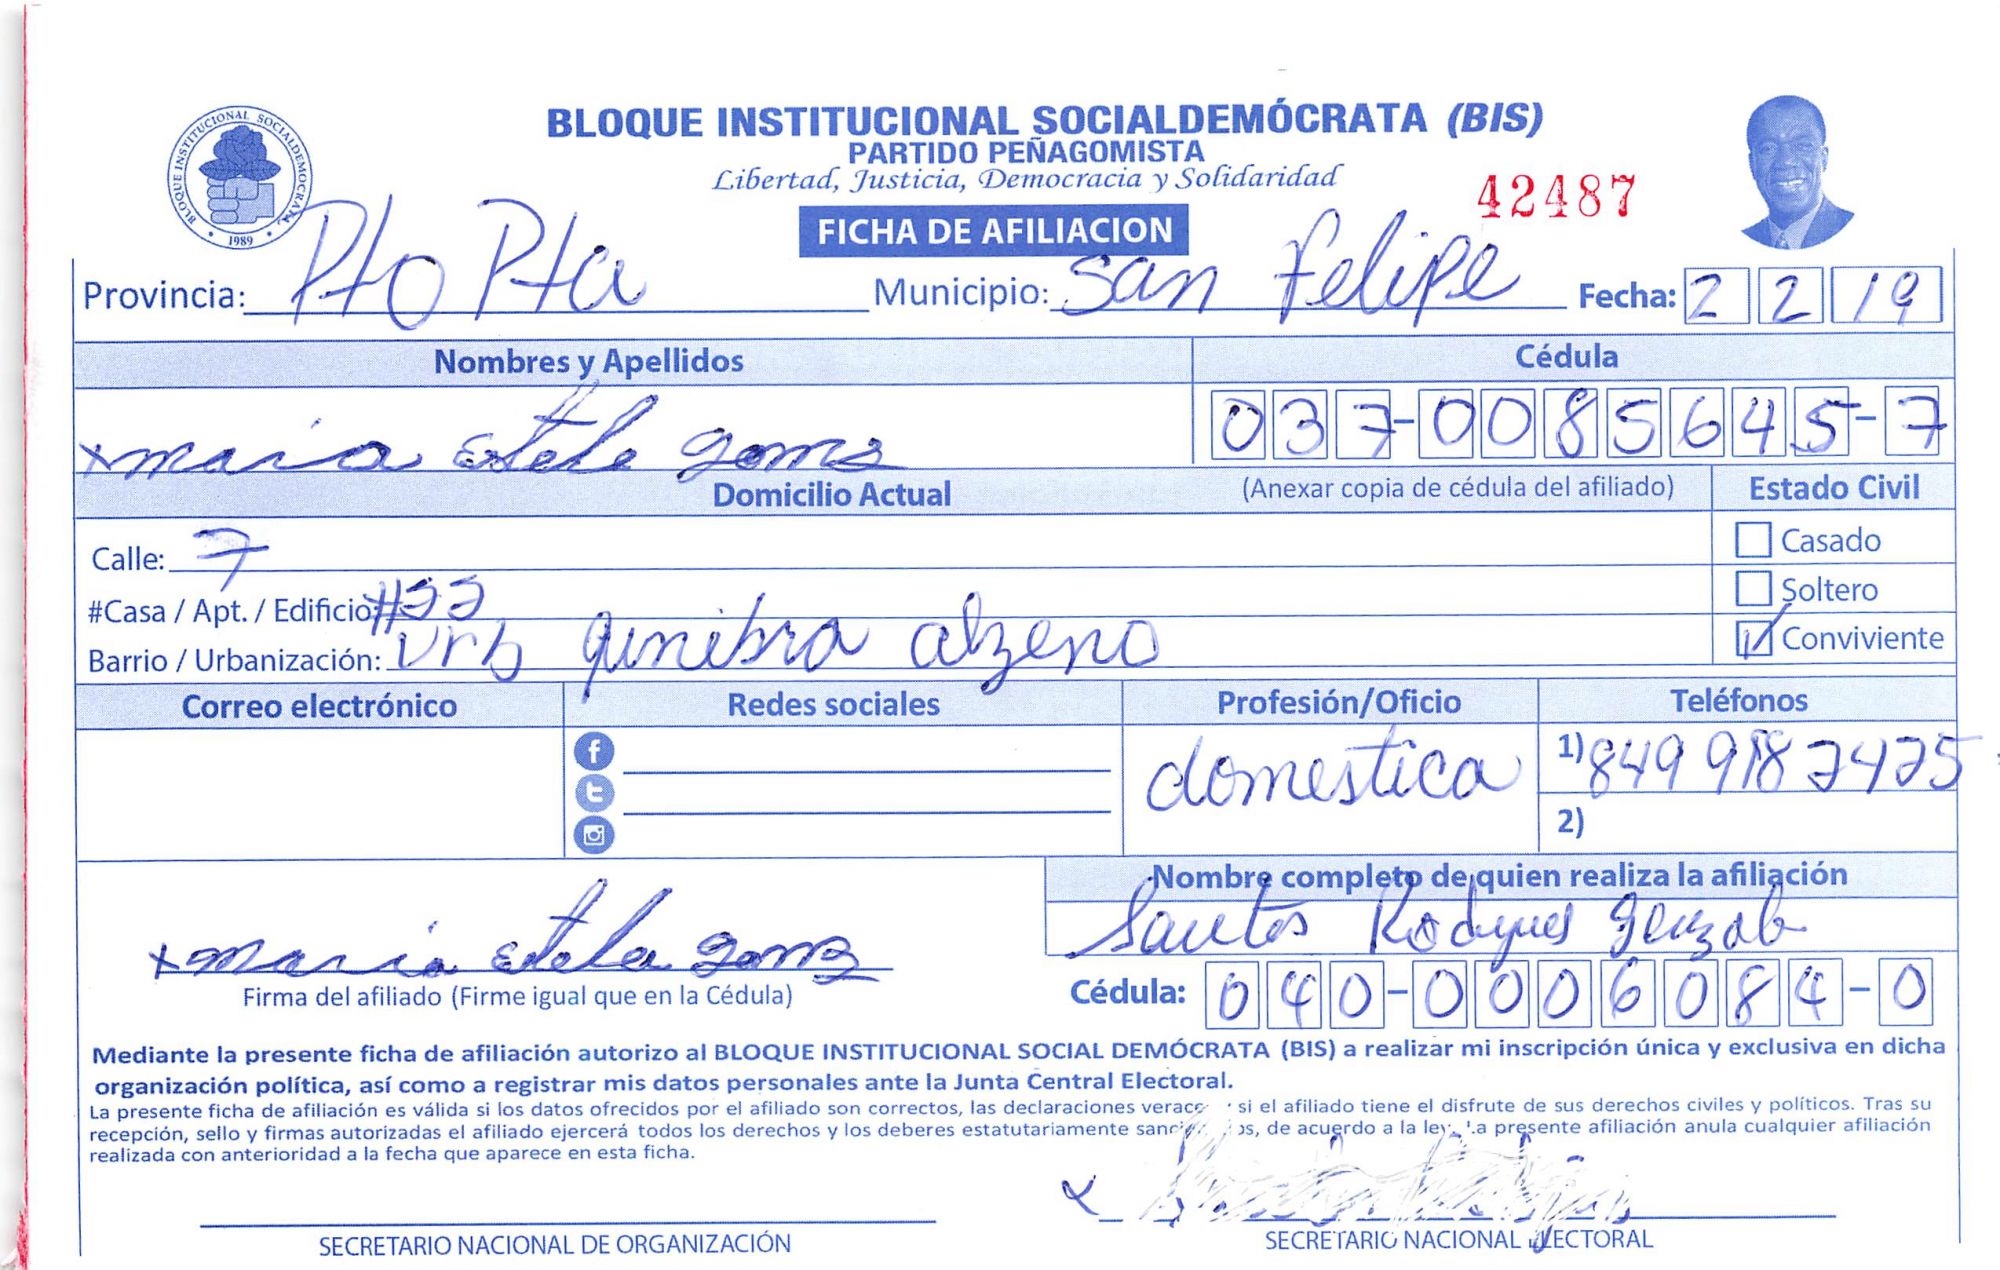 BLOQUE INSTITUCIONAL SOCIALDEMOCRATA
1989
BLOQUE INSTITUCIONAL SOCIALDEMÓCRATA (BIS)
PARTIDO PEÑAGOMISTA
Libertad, Justicia, Democracia y Solidaridad
42487
FICHA DE AFILIACION
Provincia: Pto Pta Municipio: San Felipe Fecha: 2 2 19
Nombres y Apellidos Cédula
x maria Estela gomz 037-0085645-7
Domicilio Actual (Anexar copia de cédula del afiliado) Estado Civil
Calle: 7 Casado
#Casa / Apt. / Edificio: #33 Soltero
Barrio / Urbanización: Urb ginebra alzeno Conviviente
Correo electrónico Redes sociales Profesión/Oficio Teléfonos
domestica 1) 849 918 7475
2)
Nombre completo de quien realiza la afiliación
Santos Rodgues
x maria Estela gomz
Firma del afiliado (Firme igual que en la Cédula) Cédula: 040-0006084-0
Mediante la presente ficha de afiliación autorizo al BLOQUE INSTITUCIONAL SOCIAL DEMÓCRATA (BIS) a realizar mi inscripción única y exclusiva en dicha
organización política, así como a registrar mis datos personales ante la Junta Central Electoral.
La presente ficha de afiliación es válida si los datos ofrecidos por el afiliado son correctos, las declaraciones verace si el afiliado tiene el disfrute de sus derechos civiles y políticos. Tras su
recepción, sello y firmas autorizadas el afiliado ejercerá todos los derechos y los deberes estatutariamente sanci os, de acuerdo a la ley. La presente afiliación anula cualquier afiliación
realizada con anterioridad a la fecha que aparece en esta ficha.
x
SECRETARIO NACIONAL DE ORGANIZACIÓN SECRETARIO NACIONAL ELECTORAL